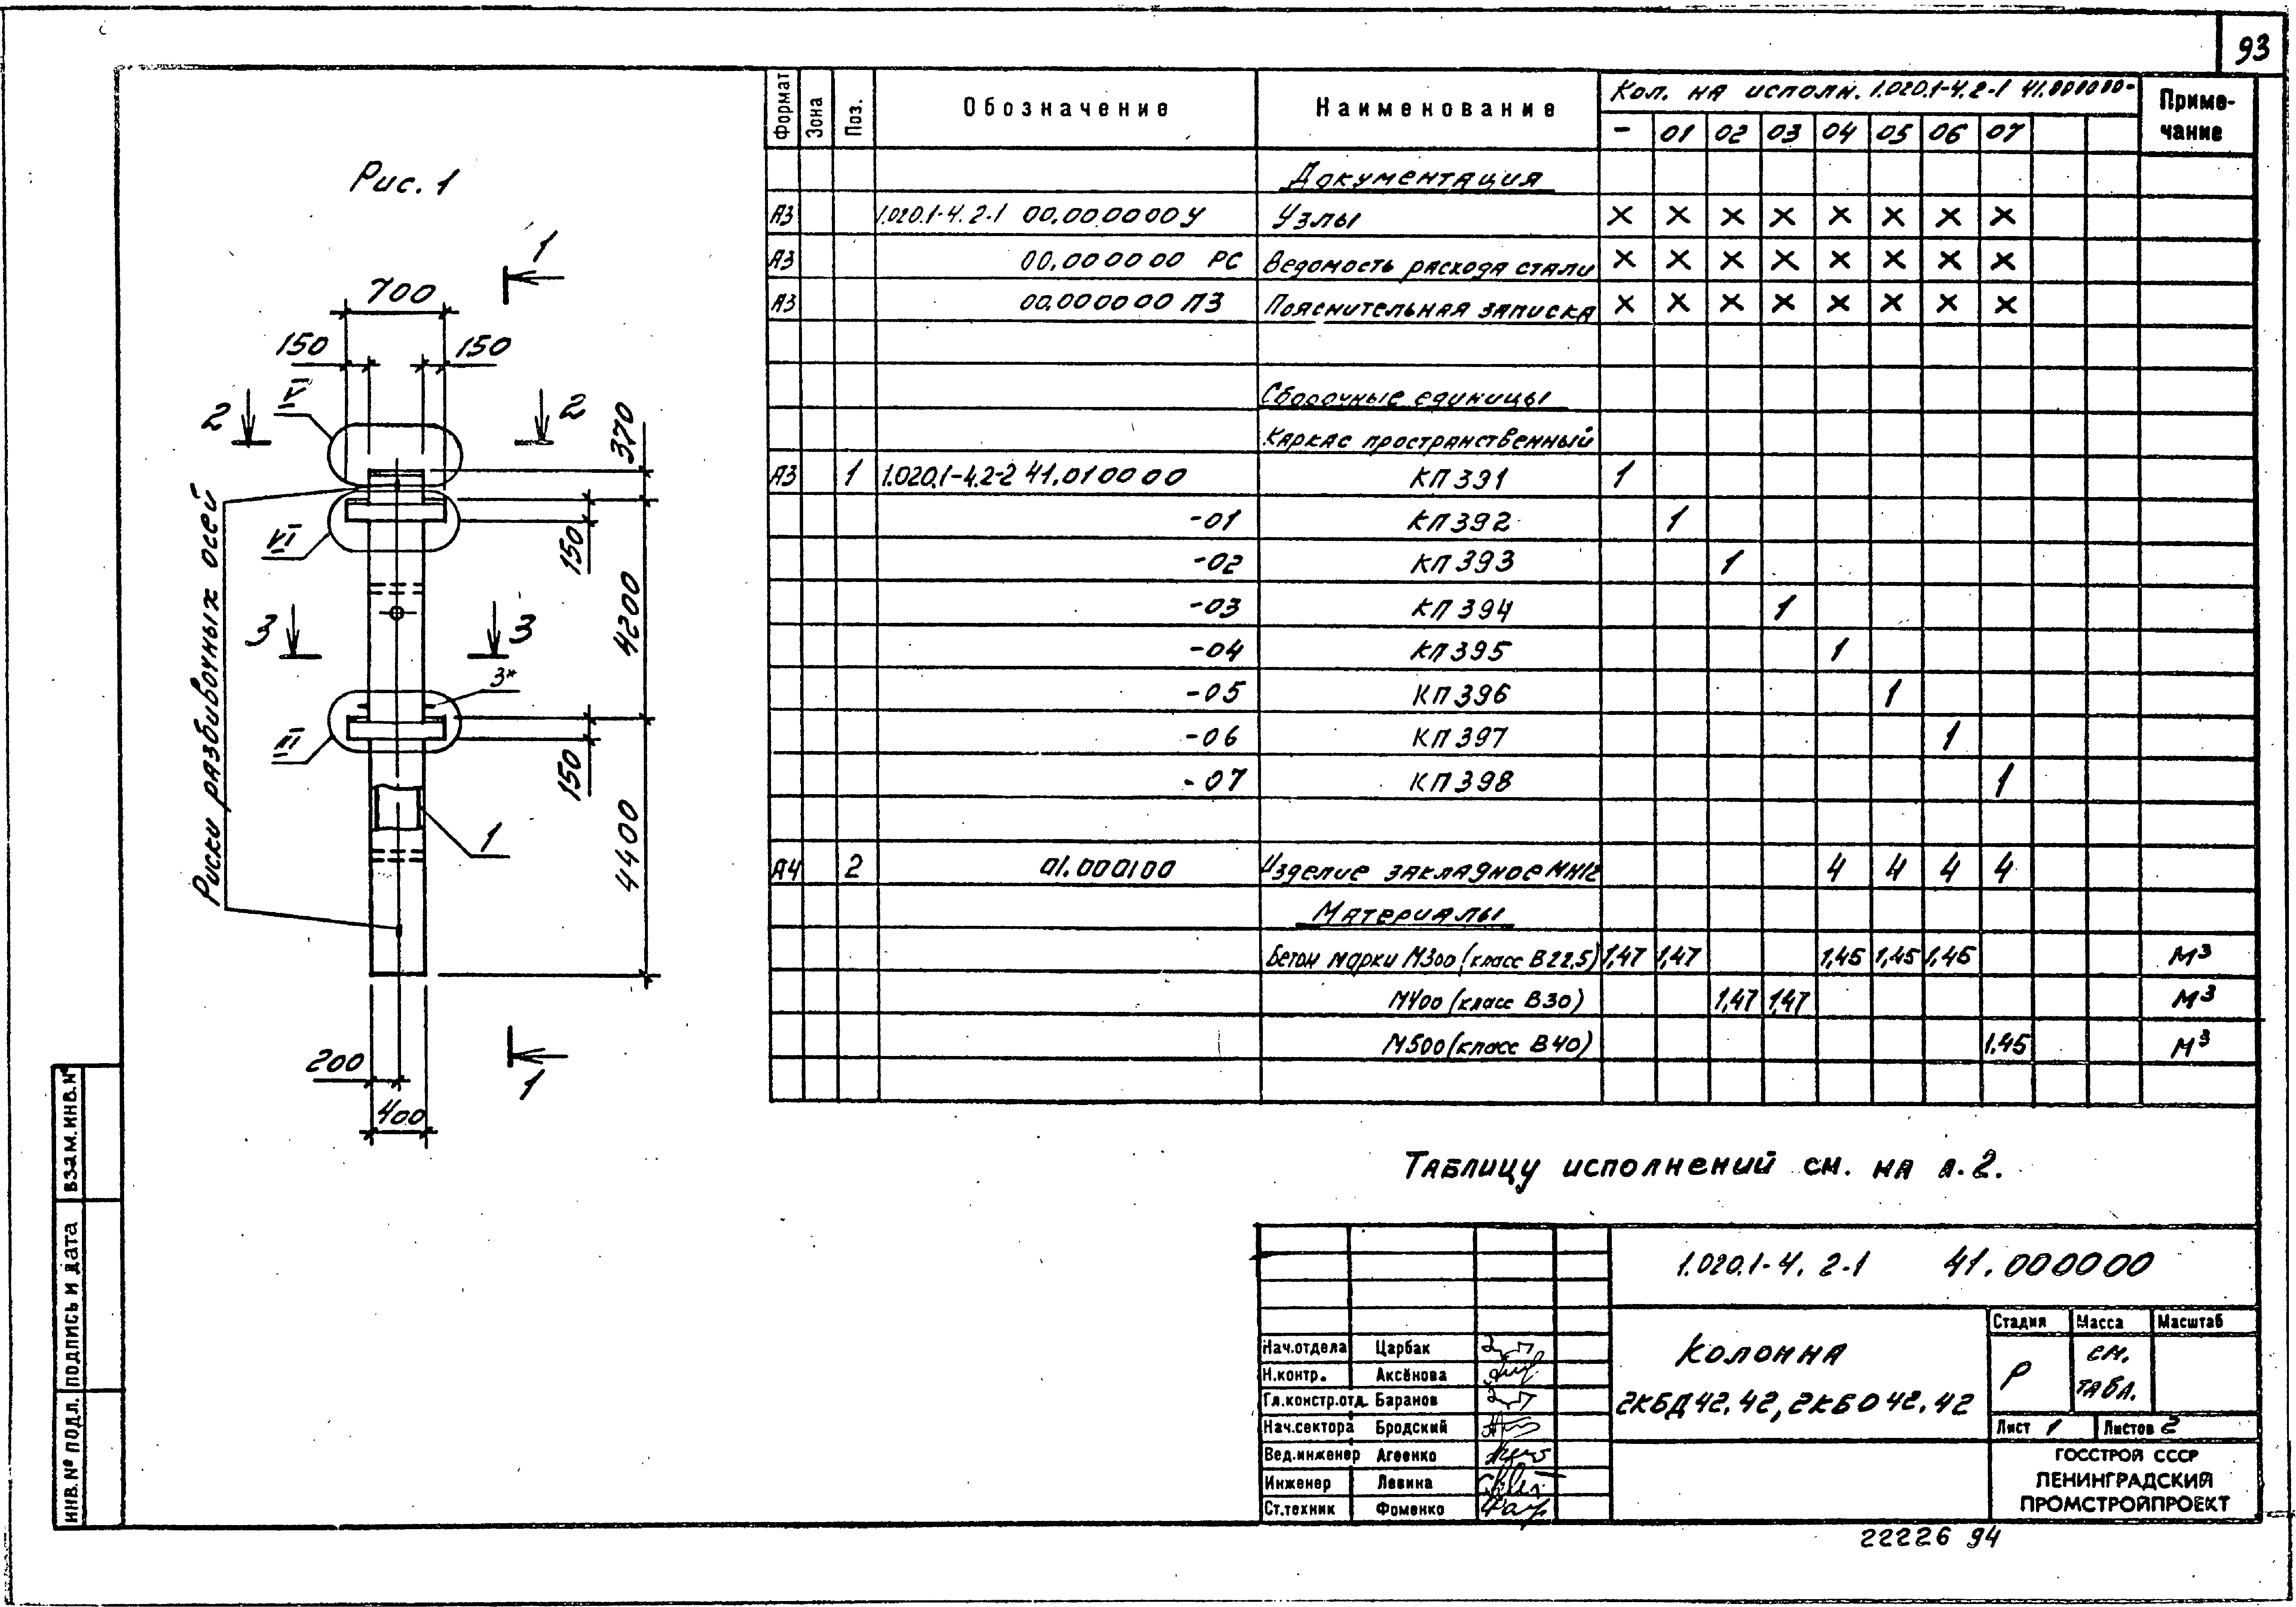 93
Рис. 1
1
700
150
150
V
2
2
370
VI
150
4200
3
3
3*
III
150
4400
1
Риски разбивочных осей
200
400
1
Формат
Зона
Поз.
Обозначение
Наименование
Кол. на исполн. 1.020.1-4.2-1 41.000000-
Приме-
чание
- 01 02 03 04 05 06 07
Документация
А3 1.020.1-4.2-1 00.000000У Узлы × × × × × × × ×
А3 00.000000 РС Ведомость расхода стали × × × × × × × ×
А3 00.000000 ПЗ Пояснительная записка × × × × × × × ×
Сборочные единицы
Каркас пространственный
А3 1 1.020.1-4.2-2 41.010000 КП 391 1
-01 КП 392 1
-02 КП 393 1
-03 КП 394 1
-04 КП 395 1
-05 КП 396 1
-06 КП 397 1
-07 КП 398 1
А4 2 01.000100 Изделие закладное МН12 4 4 4 4
Материалы
Бетон марки М300 (класс В22,5) 1,47 1,47 1,45 1,45 1,45 М³
М400 (класс В30) 1,47 1,47 М³
М500 (класс В40) 1,45 М³
Таблицу исполнений см. на л. 2.
1.020.1-4. 2-1 41.000000
Колонна
2КБД42.42, 2КБО42.42
Стадия Масса Масштаб
Р
см.
табл.
Лист 1 Листов 2
ГОССТРОЙ СССР
ЛЕНИНГРАДСКИЙ
ПРОМСТРОЙПРОЕКТ
Нач.отдела Царбак
Н.контр. Аксёнова
Гл.констр.отд. Баранов
Нач.сектора Бродский
Вед.инженер Агеенко
Инженер Левина
Ст.техник Фоменко
ИНВ.№ ПОДЛ. ПОДПИСЬ И ДАТА ВЗАМ.ИНВ.№
22226 94